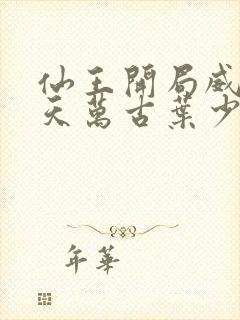 仙王開局威
天萬古葉少
年華